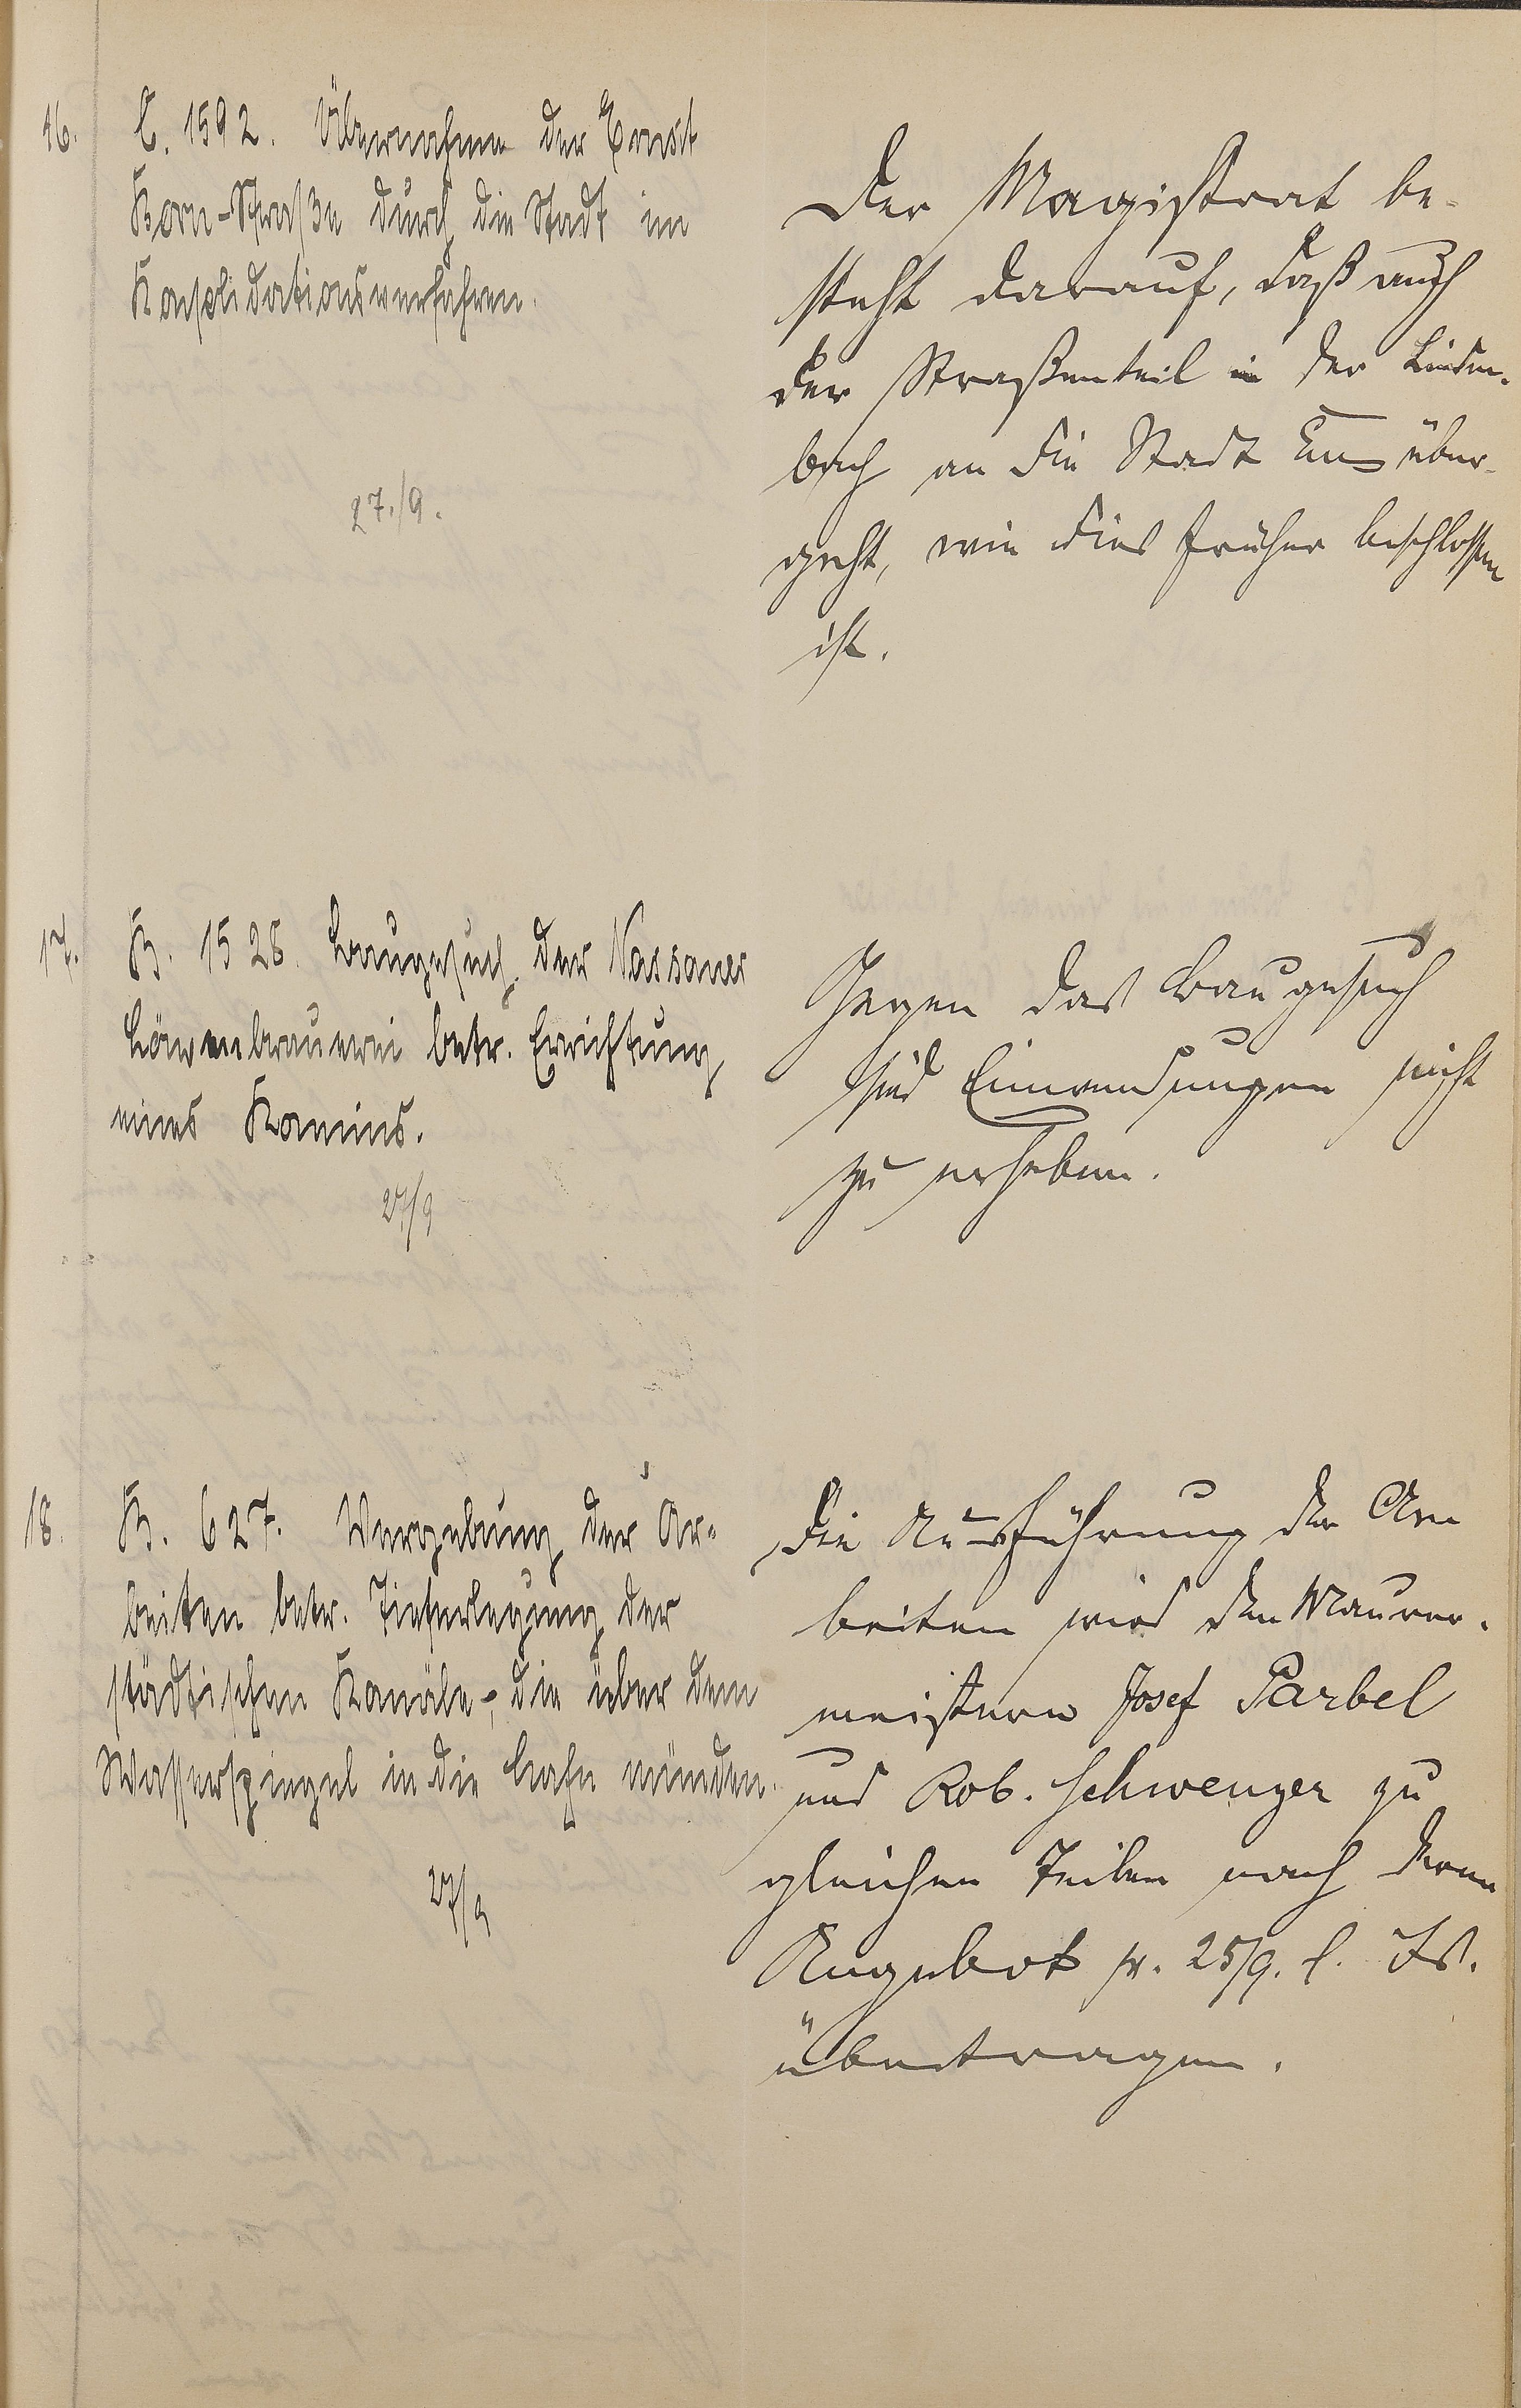 16.
C. 1592. Übernahme der Ernst
Born-Straße durch die Stadt im
Konsolidationsverfahren.
27./9.
Der Magistrat be-
steht darauf, daß auch
der Straßenteil in der Linden-
bach an die Stadt Ems über-
geht, wie dies früher beschlossen
ist.
17.
B. 1528. Baugesuch der Nassauer
Löwenbrauerei betr. Errichtung
eines Kamins.
27/9
Gegen das Baugesuch
sind Einwendungen nicht
zu erheben.
18.
B. 627. Vergebung der Ar-
beiten betr. Tieferlegung der
städtischen Kanäle, die über dem
Wasserspiegel in die Lahn münden.
27/9
Die Ausführung der Ar-
beiten wird den Maurer-
meistern Josef Parbel
und Rob. Schwenzer zu
gleichen Teilen nach deren
Angebot pr. 25/9. l. Js.
übertragen.